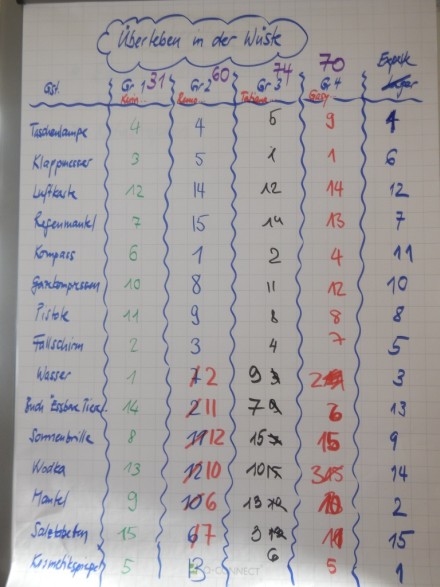 Überleben in der Wüste
Gr 1 31 Gr 2 60 Gr 3 74 Gr 4 70 Experte
Gst.
Taschenlampe 4 4 5 9 4
Klappmesser 3 5 1 1 6
Luftkarte 12 14 12 14 12
Regenmantel 7 15 14 13 7
Kompass 6 1 2 4 11
Gazekompressen 10 8 11 12 10
Pistole 11 9 8 8 8
Fallschirm 2 3 4 7 5
Wasser 1 2 9 2 3
Buch "Essbare Tiere" 14 11 7 6 13
Sonnenbrille 8 12 15 15 9
Wodka 13 10 10 3 14
Mantel 9 6 13 2
Salztabletten 15 7 3 15
Kosmetikspiegel 5 6 5 1
CONNECT